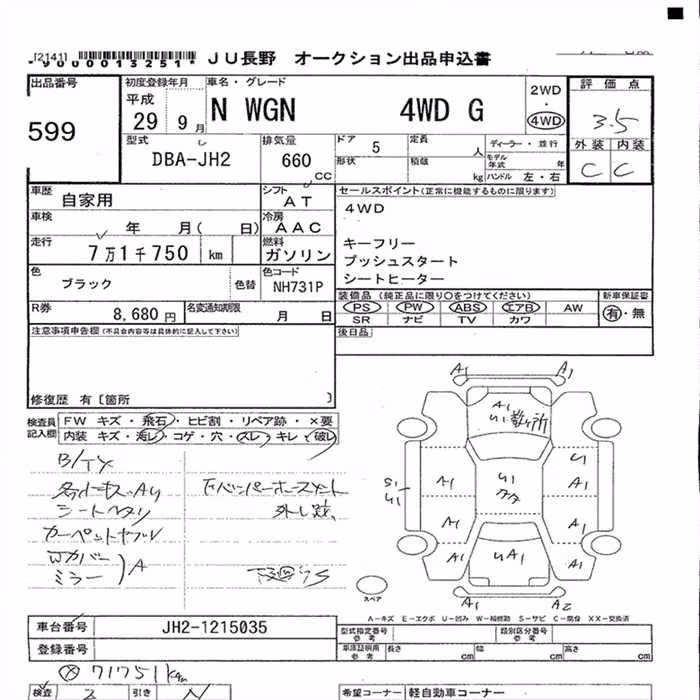 [2141]
*9000013251* JU長野 オークション出品申込書
出品番号
599
初度登録年月
平成
29 9月
車名・グレード
N WGN 4WD G
2WD
・
4WD
評価点
3.5
外装 内装
C C
型式
DBA-JH2
排気量
660 CC
ドア 5
形状
定員 人
積載 kg
ディーラー・並行
モデル年式 年
ハンドル 左・右
車歴
自家用
シフト
AT
セールスポイント(正常に機能するものに限ります)
4WD
キーフリー
プッシュスタート
シートヒーター
車検
年 月( 日)
冷房
AAC
走行
7万1千750 km
燃料
ガソリン
色
ブラック
色替
色コード
NH731P
装備品 (純正品に限り○をつけてください)
PS PW ABS エアB AW
SR ナビ TV カワ
新車保証書
有・無
R券
8,680円
名変通知期限
月 日
後日品
注意事項申告欄(不具合内容等は具体的に記入して下さい)
修復歴 有〔箇所 〕
検査員
記入欄
FW キズ・飛石・ヒビ割・リペア跡・×要
内装 キズ・汚レ・コゲ・穴・スレ・キレ・破レ
シートヘタリ
ミラー
A
外し跡
A1 A1
A1 A1
A1 A1
A1 A1
A1 A2
スペア
A-キズ E-エクボ U-凹み W-補修跡 S-サビ C-腐食 XX-交換済
車台番号 JH2-1215035
登録番号
型式指定番号
参考
類別区分番号
参考
車庫証明用
参考
長さ cm
幅 cm
高さ cm
71751km
検査
引き
希望コーナー 軽自動車コーナー